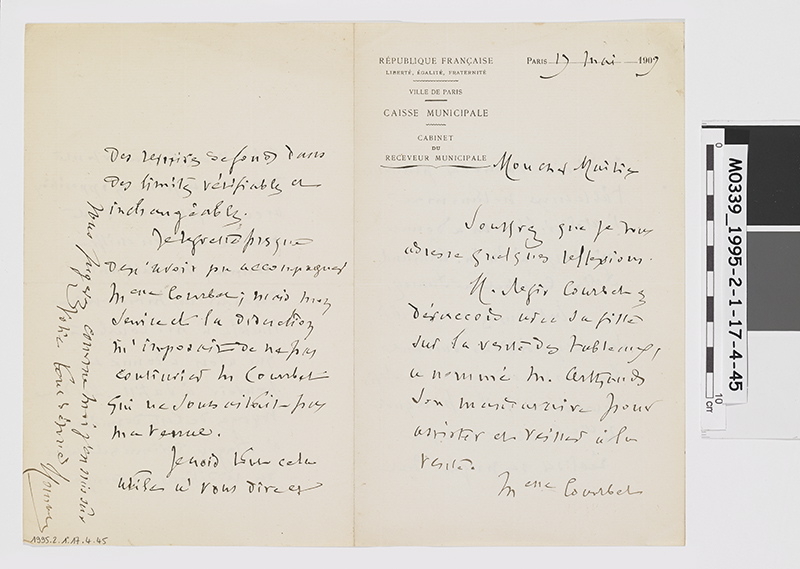 RÉPUBLIQUE FRANÇAISE
LIBERTÉ, ÉGALITÉ, FRATERNITÉ
VILLE DE PARIS
CAISSE MUNICIPALE
CABINET
DU
RECEVEUR MUNICIPALE
PARIS 19 Mai 1909
Mon cher Maître
Souffrez que je vous
adresse quelques réflexions.
M. Régis Courbet
désaccord avec sa fille
sur la vente des tableaux,
a nommé M.
son mandataire pour
assister et veiller à la
vente.
Melle Courbet
des repaires de fonds dans
des limites vérifiables et
inchangeables.
Je regrette presque
de n'avoir pu accompagner
Melle Courbet; mais mon
service à la Direction
m'imposait de ne pas
contrarier M Courbet
qui ne souhaitait pas
ma venue.
Je crois tout cela
utile à vous dire et
vous jugerez comme moi j'en suis sûr
Votre tout dévoué
M0339_1995-2-1-17-4-45
0
10
cm
1995.2.1.17.4.45